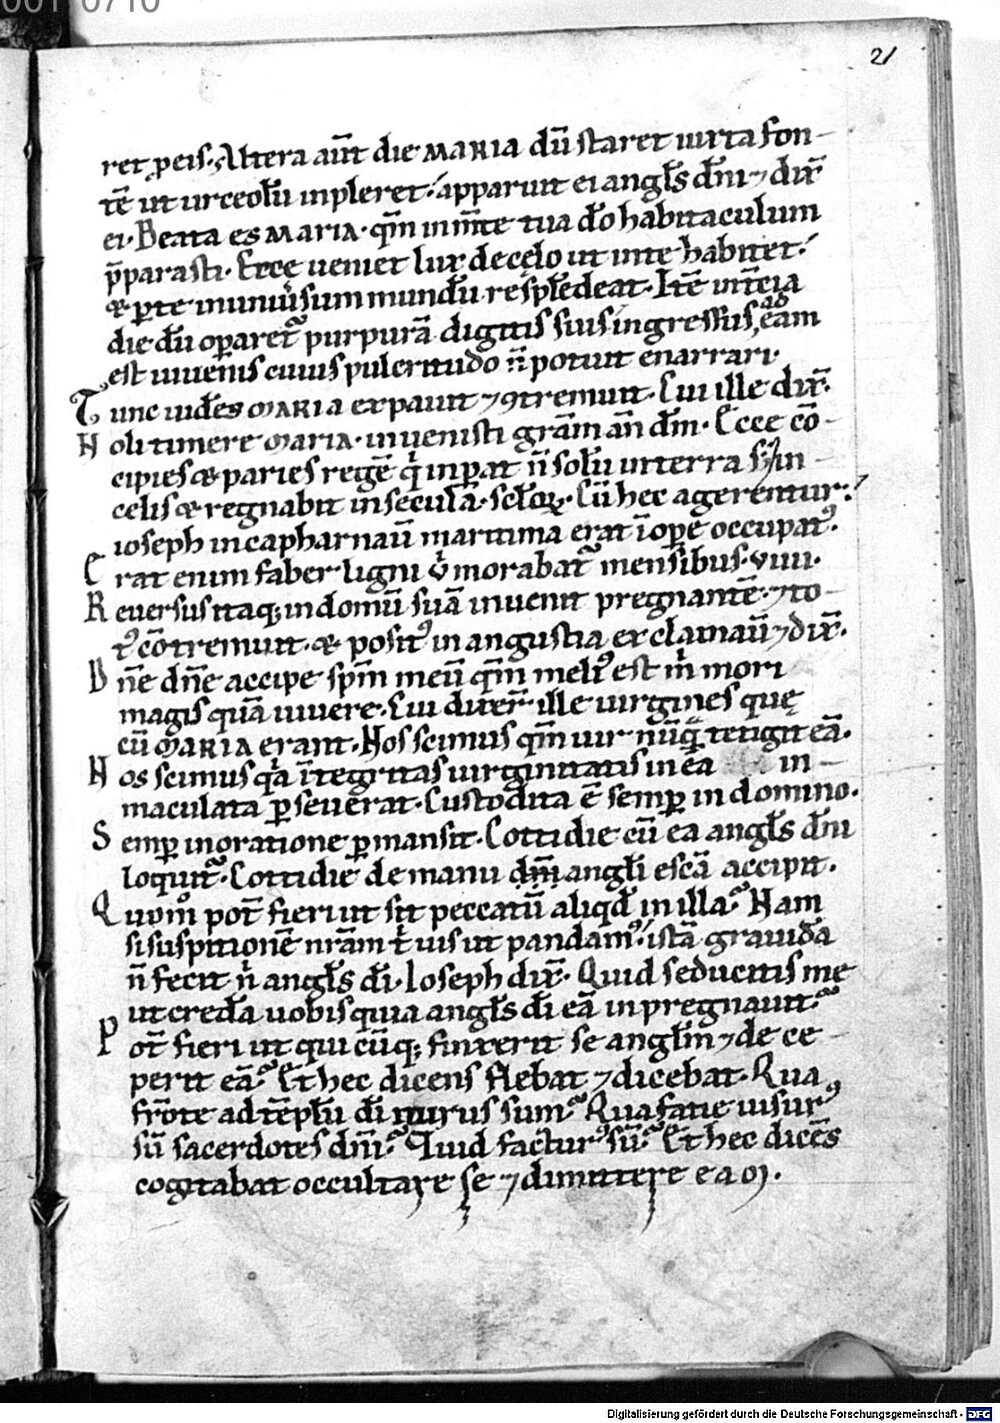 21
ret p̱ eis. Altera aūt die MARIA dū staret iuxta fon-
tē ut urceolū inpleret. apparuit ei angl̄s dn̄i ⁊ dix̄
ei. Beata es MARIA. qm̄ in m̄te tua do habitaculum
p̄parasti. Ecce ueniet lux de celo ut in te habitet.
& p̱ te in uniu̓sum mundū resplēdeat. Itē in t̄cia
die dū op̱aret᷑ purpurā digitis suis ingressus ad eam
est iuuenis cuius pulcritudo n̄ potuit enarrari.
Tunc uidēs MARIA expauit ⁊ ꝯtremuit. Cui ille dix̄.
Noli timere MARIA. inuenisti grām an̄ dm̄. Ecce cō-
cipies & paries regē qͥ inp̱at n̄ solū in terra s; ⁊ in
celis & regnabit in secula sclo̱ꝝ. Cū hec agerentur.
ioseph in capharnaū maritima erat ī ope occupatꝰ.
Erat enim faber ligni ů morabat᷑ mensibus. viiii.
Reuersus itaq; in domū suā inuenit pregnantē. ⁊ to-
tꝰ cōtremuit. & positꝰ in angustia exclamau̅ ⁊ dix̄.
Dn̄e dn̄e accipe spm̄ meū qm̄ melꝰ est mͥ mori
magis quā uiuere. Cui dixer̄ ille uirgines quę
cū MARIA erant. Nos scimus qm̄ uir nūqͣ tetigit eā.
Nos scimus qa ītegritas uirginitatis in ea in-
maculata p̱seuerat. Custodita ē semp̱ in domino.
Semp̱ in oratione p̱mansit. Cottidie cū ea angl̄s dn̄i
loquit᷑. Cottidie de manu dn̄i angl̄i escā accipit.
Quom̊ pot̄ fieri ut sit peccatū aliqd̄ in illa. Nam
si suspitionē nrām tͥ uis ut pandamꝰ. istā grauidā
n̄ fecit nͥ angl̄s dī. Ioseph dix̄. Quid seducitis me
ut credā uobis quia angl̄s dī eā inpregnauit.
Pot̄ fieri ut qui cūq; finxerit se angl̄m ⁊ dece
perit eā. Et hec dicens flebat ⁊ dicebat. Qua
frōte ad tēplū dī iturus sum. Qua facie uisurꝰ
sū sacerdotes dn̄i. Quid facturꝰ sū. Et hec dicēs
cogitabat occultare se ⁊ dimittere eam.
Digitalisierung gefördert durch die Deutsche Forschungsgemeinschaft - DFG